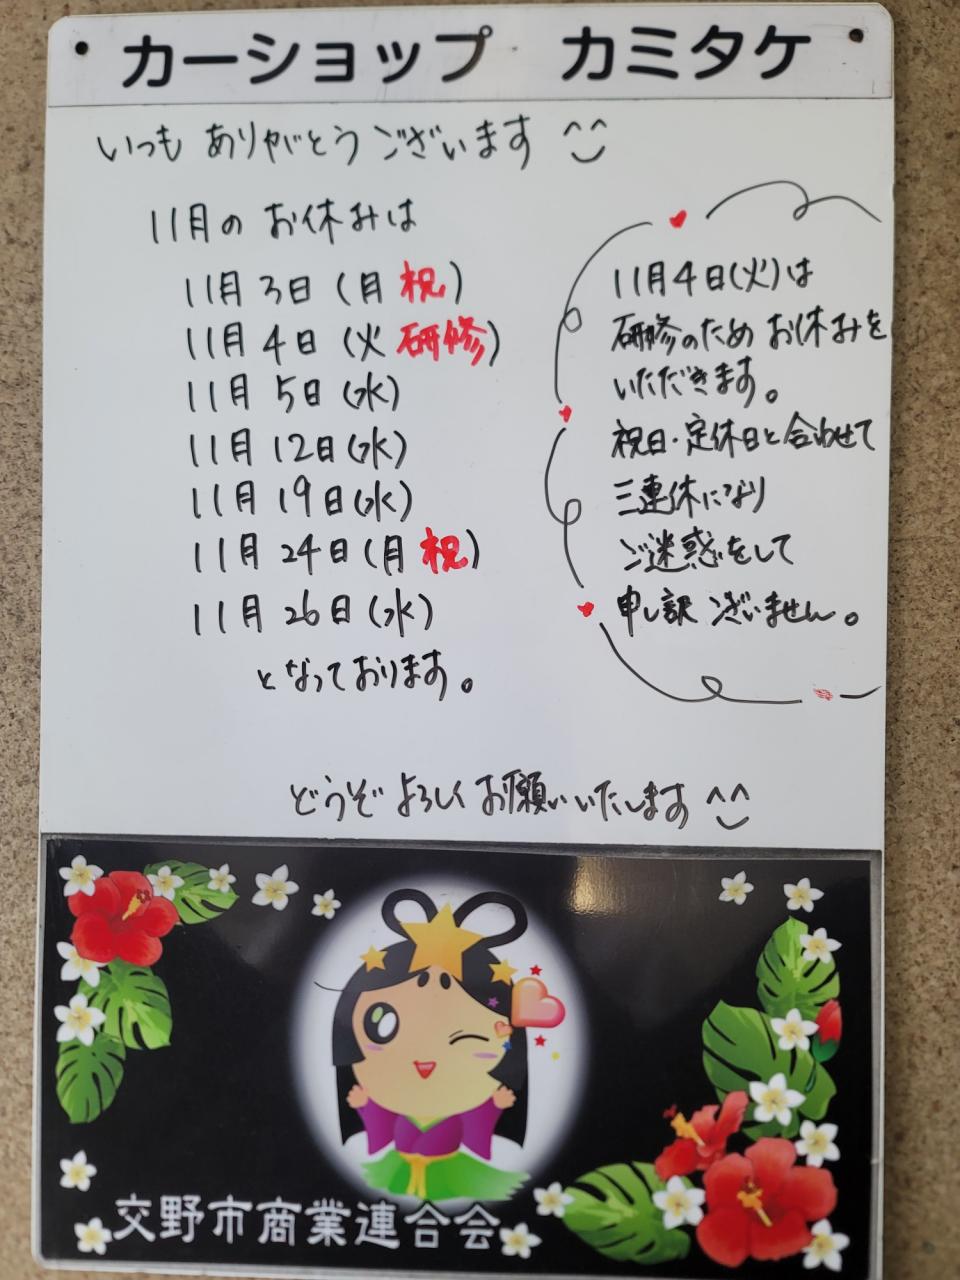 カーショップ カミタケ
いつも ありがとうございます ^^
11月の お休みは
11月 3日 (月 祝)
11月 4日 (火 研修)
11月 5日 (水)
11月 12日 (水)
11月 19日 (水)
11月 24日 (月 祝)
11月 26日 (水)
となっております。
11月4日(火)は
研修のため お休みを
いただきます。
祝日・定休日と合わせて
三連休になり
ご迷惑をして
申し訳ございません。
どうぞ よろしく お願いいたします ^^
交野市商業連合会